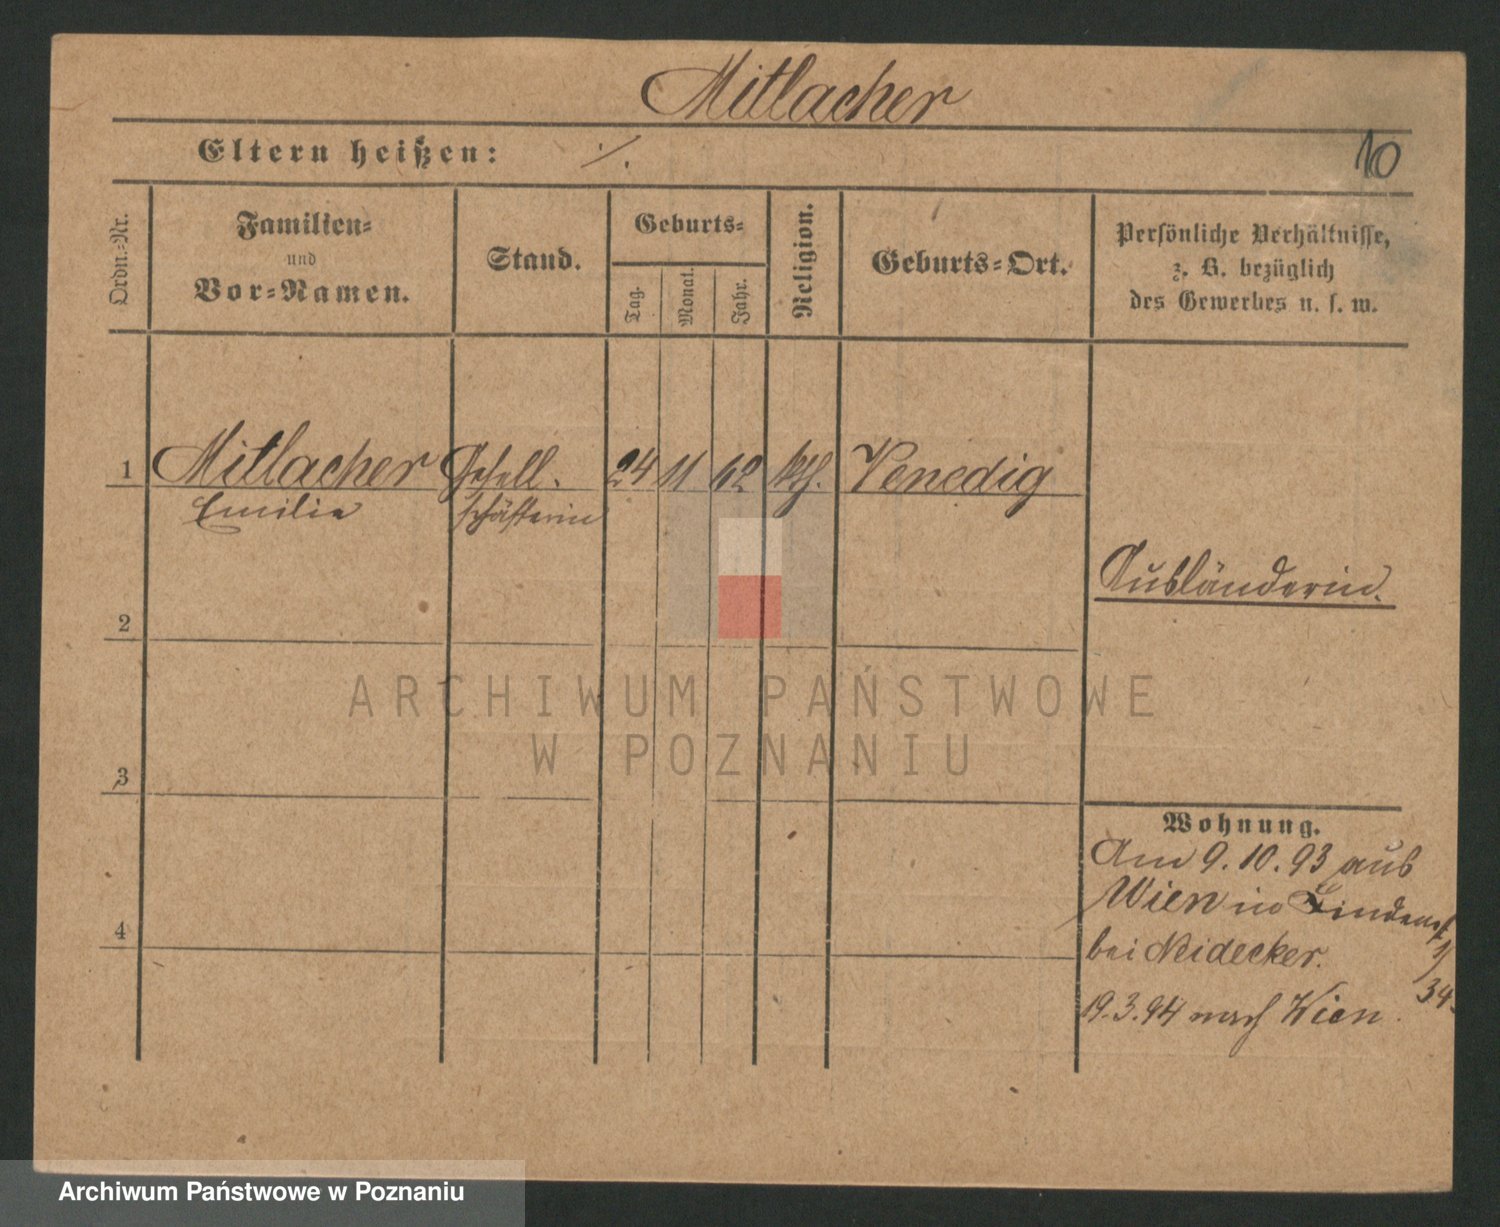 Mitlacher
Eltern heißen: ·/.
10
Ordn.-Nr.
Familien-
und
Vor-Namen.
Stand.
Geburts-
Tag.
Monat.
Jahr.
Religion.
Geburts-Ort.
Persönliche Verhältnisse,
z. B. bezüglich
des Gewerbes u. s. w.
1 Mitlacher Gesell- 24 11 62 kth. Venedig
Emilie schafterin
Ausländerin.
2
ARCHIWUM PAŃSTWOWE
W POZNANIU
3
Wohnung.
Am 9.10.93 aus
Wien in Lindenst.
4
bei Neidecker.
19.3.94 nach Wien.
34.
Archiwum Państwowe w Poznaniu